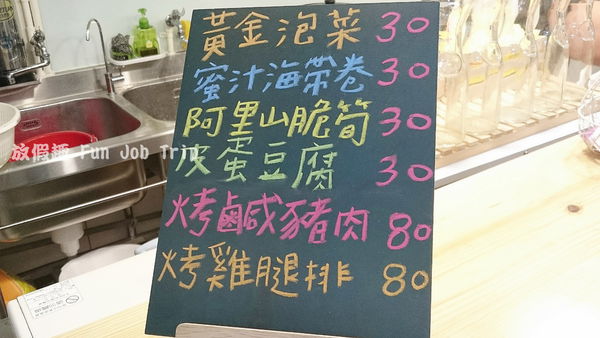 黃金泡菜 30
蜜汁海帶卷 30
阿里山脆筍 30
皮蛋豆腐 30
烤鹹豬肉 80
烤雞腿排 80
放假趣 Fun Job Trip